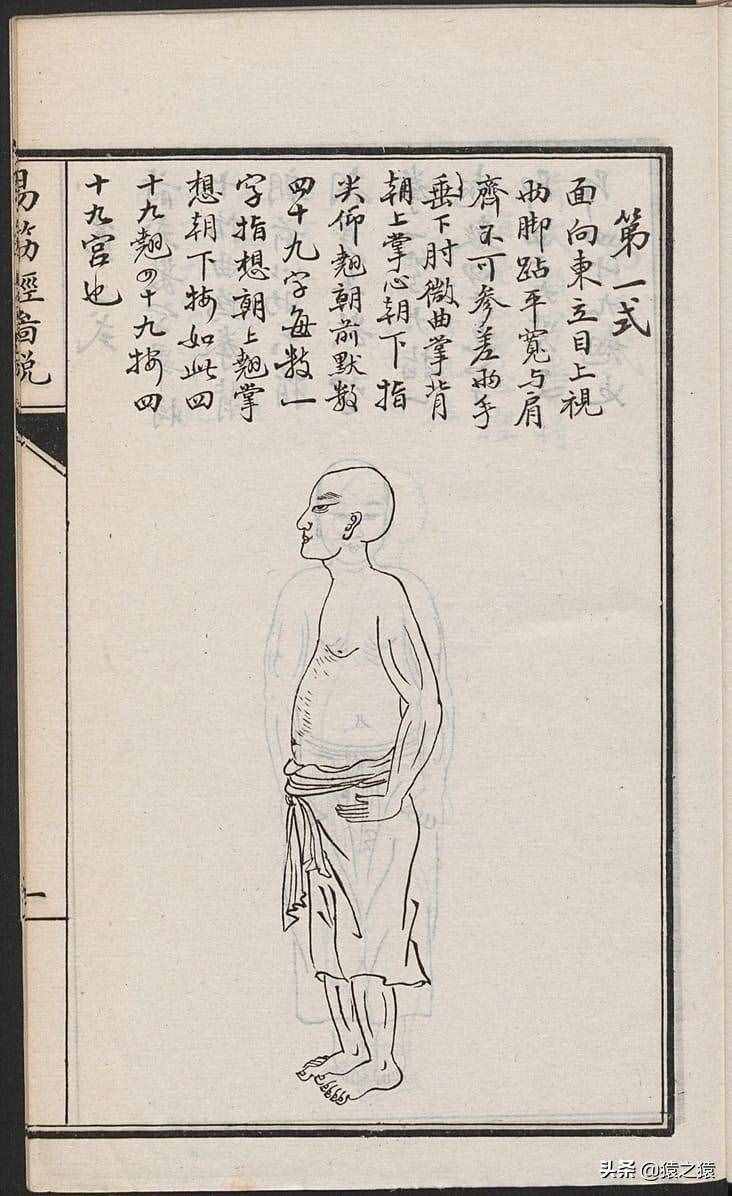 第一式
面向東立目上視
兩脚跕平寬与肩
齊不可參差兩手
垂下肘微曲掌背
朝上掌心朝下指
尖仰翹朝前默数
四十九字每数一
字指想朝上翹掌
想朝下按如此四
十九翹四十九按四
十九宫也
易筋經啚說
一
头条 @猿之猿